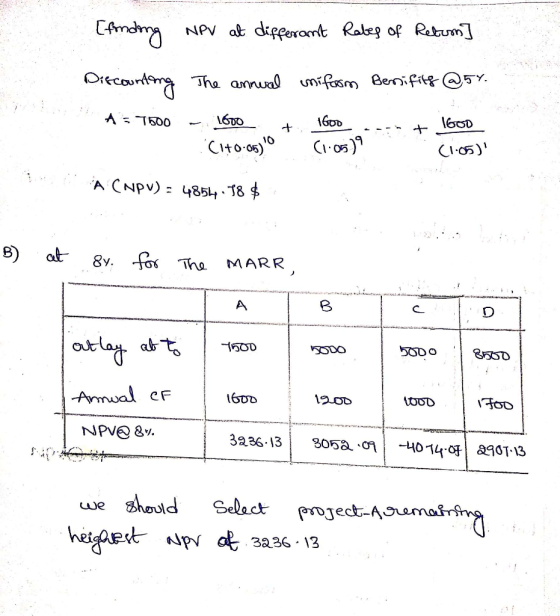 [finding NPV at differant Rates of Return]
Discounting The annual uniform Benifits @5%.
A = 7500 - 1600/(1+0.05)^10 + 1600/(1.05)^9 ---- + 1600/(1.05)^1
A (NPV) = 4854.78 $
B) at 8%. for The MARR,
A B C D
outlay at to 7500 5000 5000 8500
Annual CF 1600 1200 1000 1700
NPV@8%. 3236.13 3052.09 -4074.07 2907.13
we should Select project-A remaining
heighest NPV of 3236.13